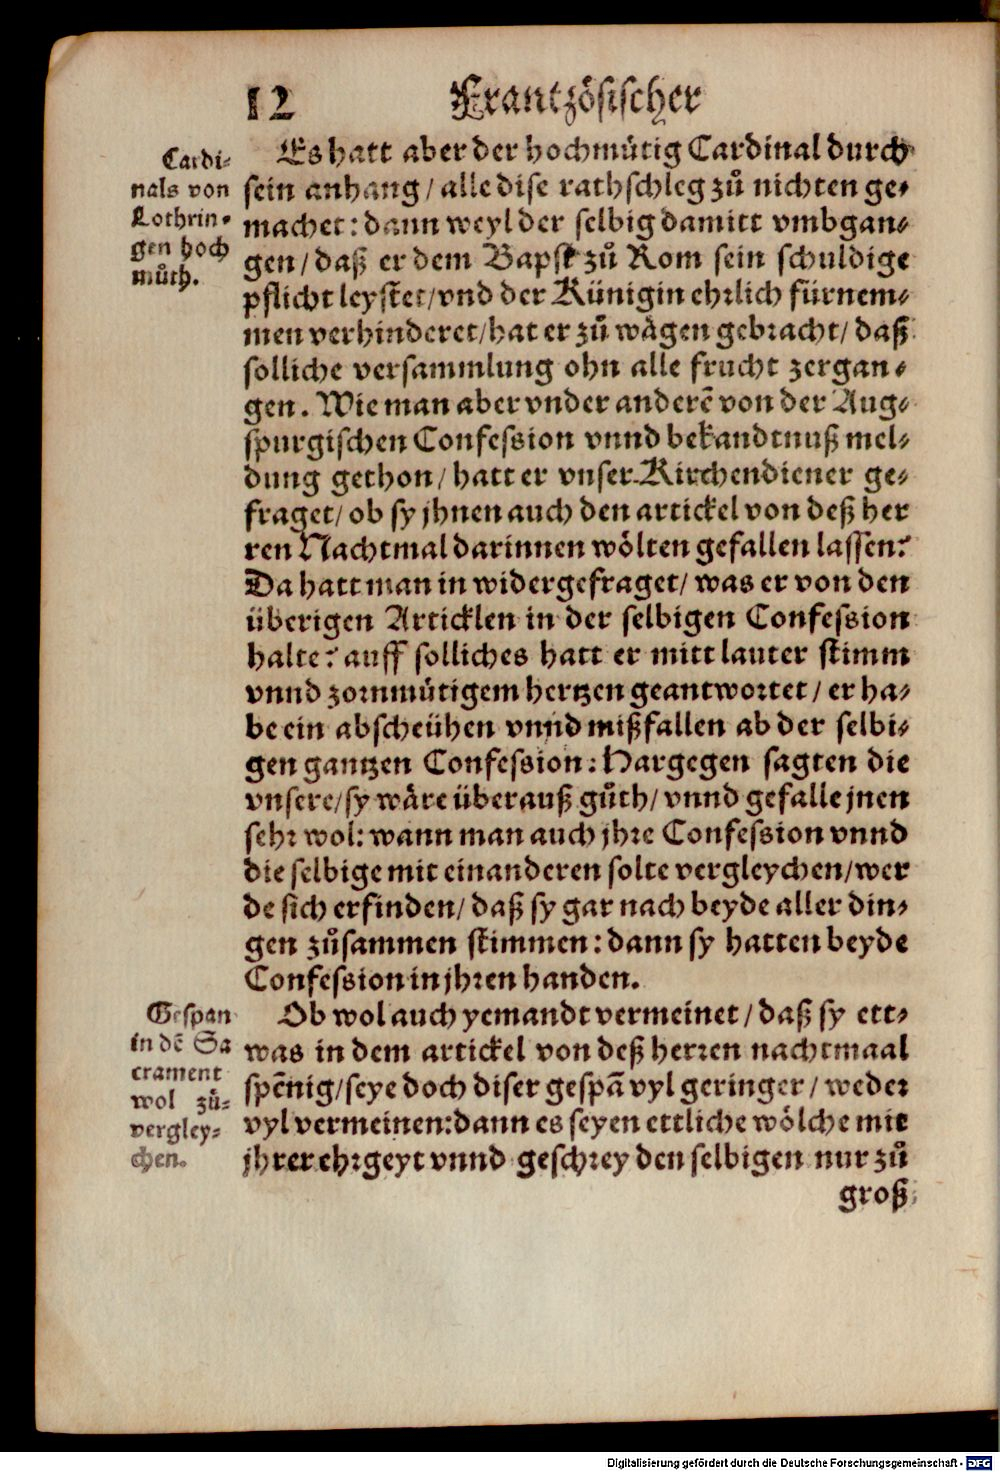 12 Frantzösischer
Cardi-
nals von
Lothrin-
gen hoch
můth.
Es hatt aber der hochmütig Cardinal durch
sein anhang/ alle dise rathschleg zů nichten ge-
machet: dann weyl der selbig damitt vmbgan-
gen/ daß er dem Bapst zů Rom sein schuldige
pflicht leystet/ vnd der Künigin ehrlich fürnem-
men verhinderet/ hat er zů wägen gebracht/ daß
solliche versammlung ohn alle frucht zergan-
gen. Wie man aber vnder anderē von der Aug-
spurgischen Confession vnnd bekandtnuß mel-
dung gethon/ hatt er vnser Kirchendiener ge-
fraget/ ob sy jhnen auch den artickel von deß her
ren Nachtmal darinnen wölten gefallen lassen?
Da hatt man in widergefraget/ was er von den
überigen Articklen in der selbigen Confession
halte? auff solliches hatt er mitt lauter stimm
vnnd zornmütigem hertzen geantwortet/ er ha-
be ein abscheühen vnnd mißfallen ab der selbi-
gen gantzen Confession: Hargegen sagten die
vnsere/ sy wäre überauß gůth/ vnnd gefalle jnen
sehr wol: wann man auch jhre Confession vnnd
die selbige mit einanderen solte vergleychen/ wer
de sich erfinden/ daß sy gar nach beyde aller din-
gen zůsammen stimmen: dann sy hatten beyde
Confession in jhren handen.
Gespan
in dē Sa
crament
wol zů-
vergley-
chen.
Ob wol auch yemandt vermeinet/ daß sy ett-
was in dem artickel von deß herren nachtmaal
spēnig/ seye doch diser gespā vyl geringer/ weder
vyl vermeinen: dann es seyen ettliche wölche mit
jhrer ehrgeyt vnnd geschrey den selbigen nur zů
groß
Digitalisierung gefördert durch die Deutsche Forschungsgemeinschaft - DFG